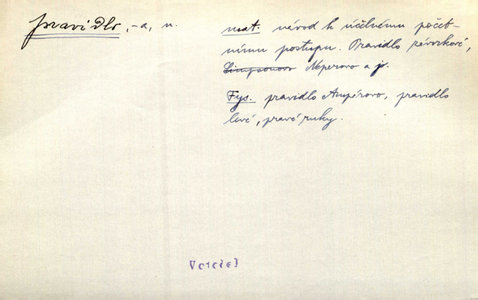 pravidlo, -a, n.
mat. návod k účelnému počet-
nímu postupu. Pravidlo závorkové,
Simpsonovo Neperovo a j.
Fys. pravidlo Ampérovo, pravidlo
levé, pravé ruky.